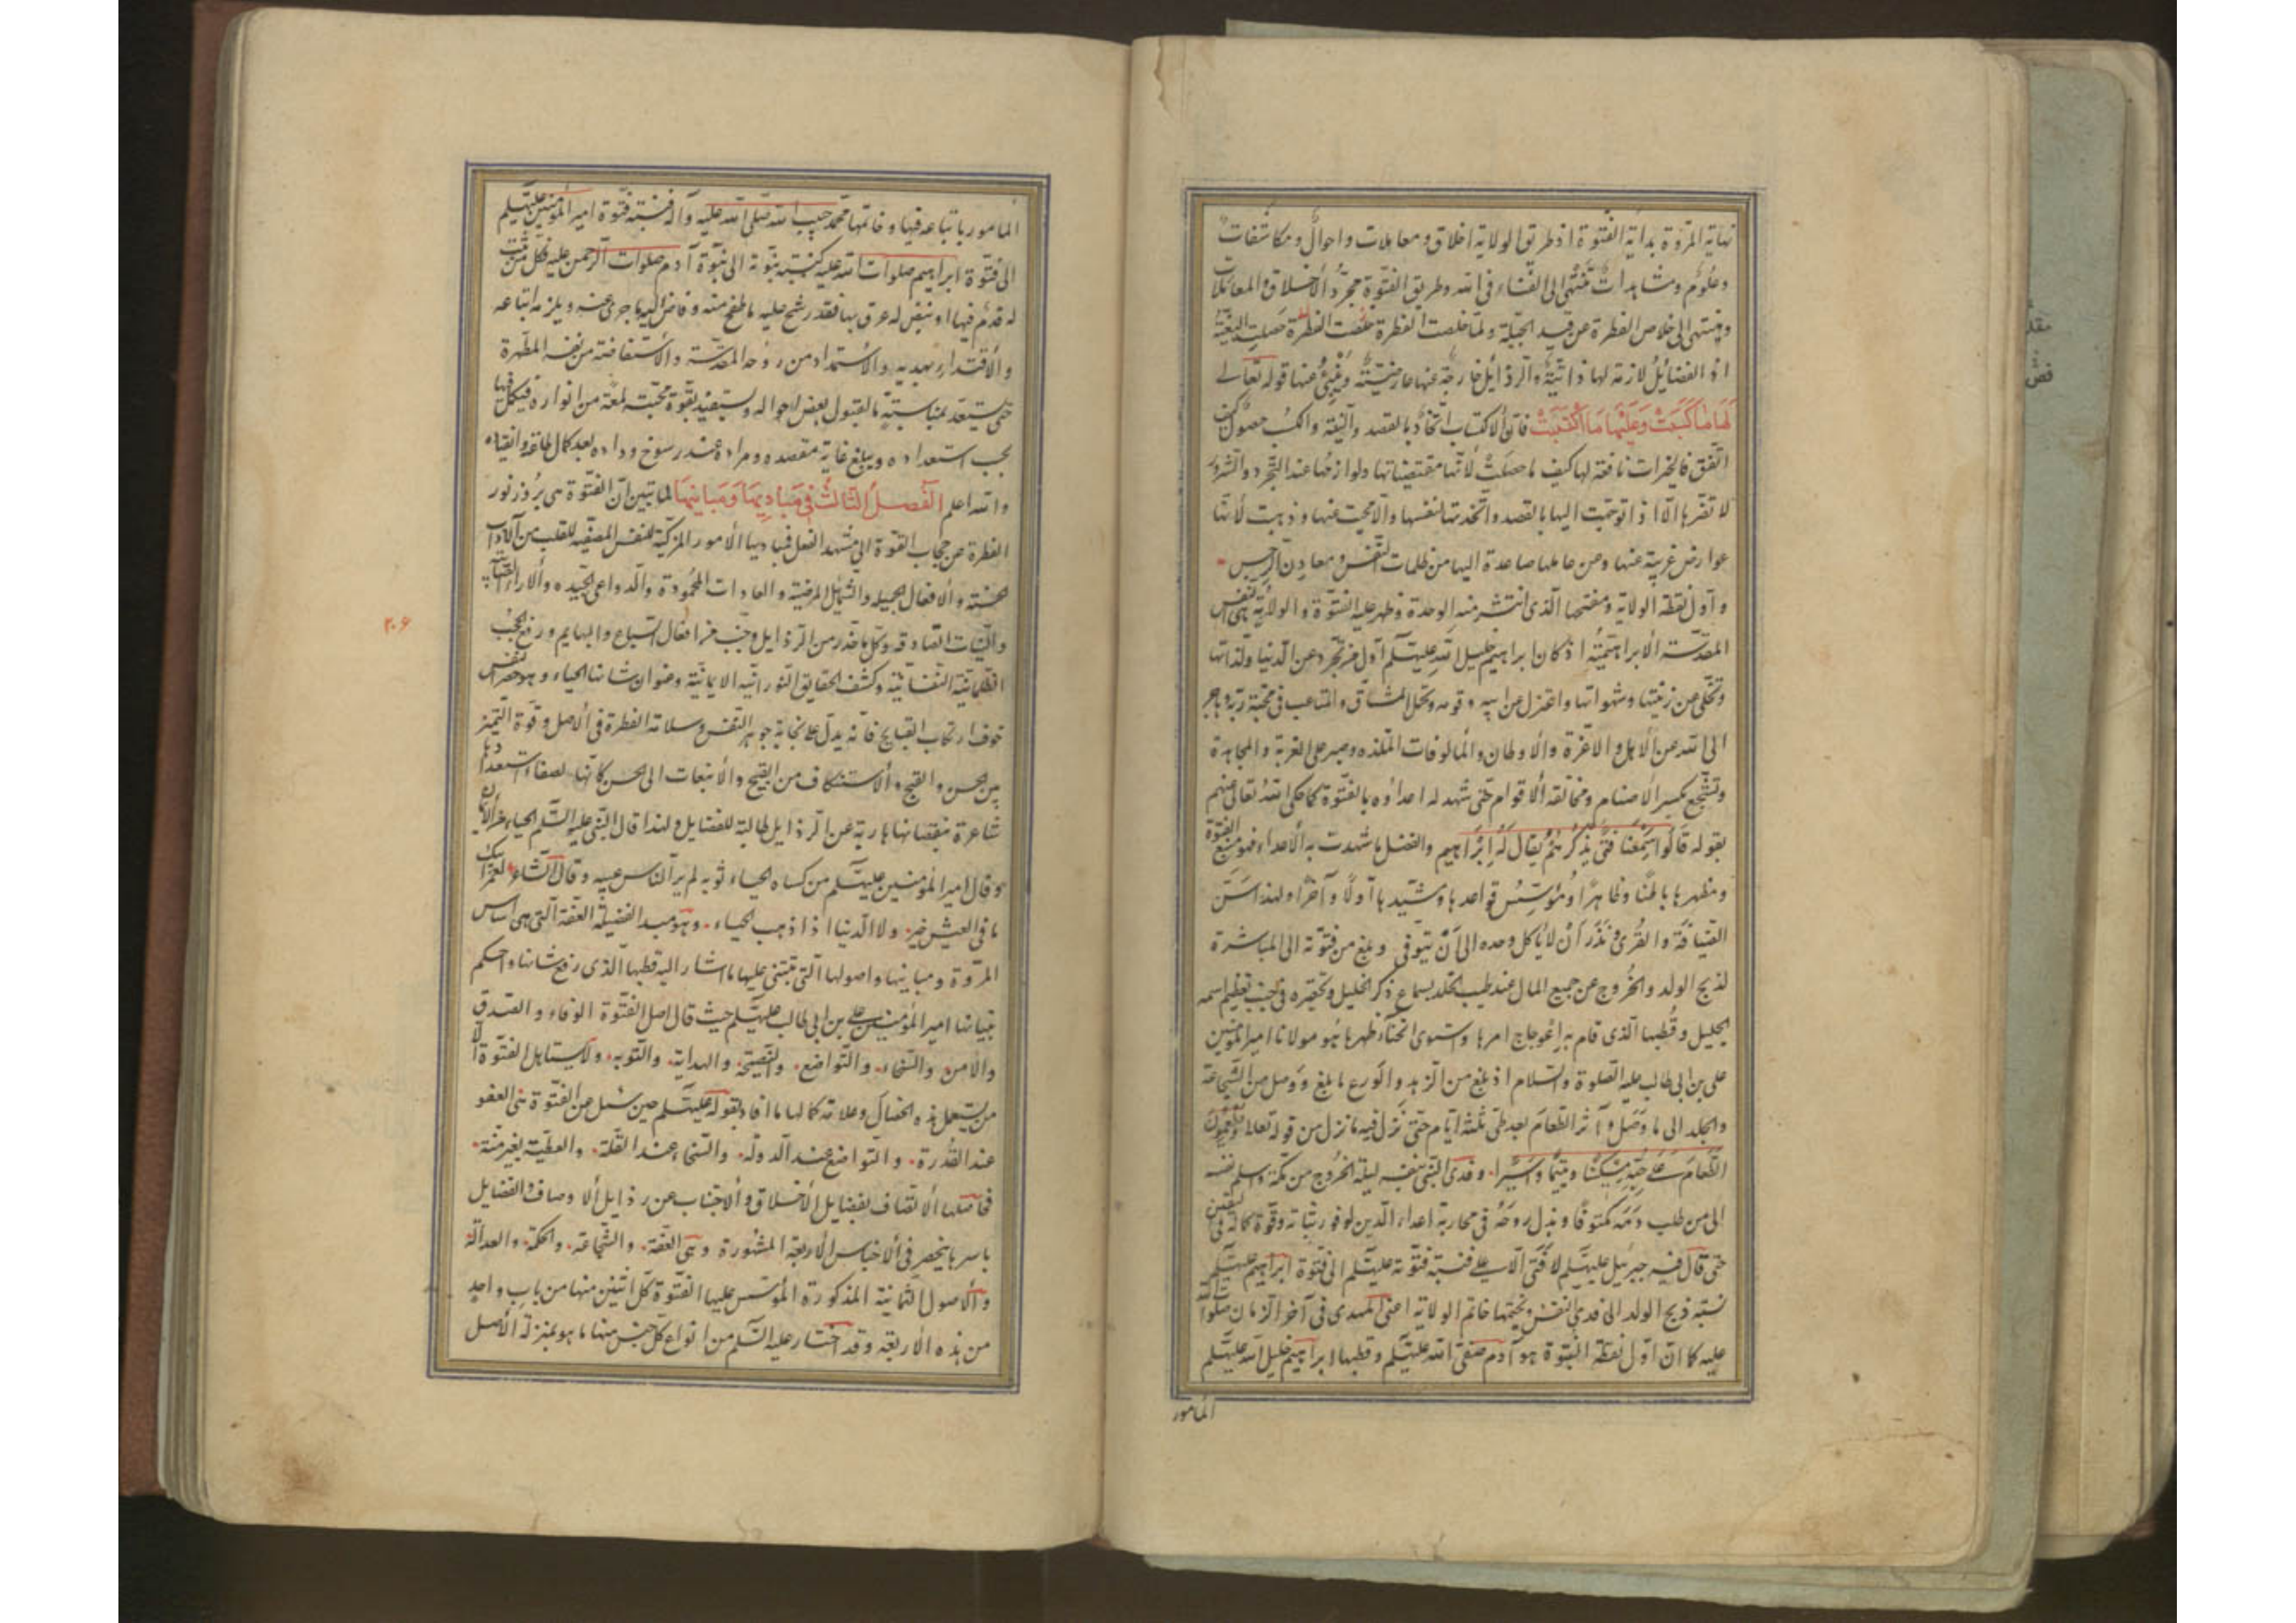 نهاية المروّة بداية الفتوّة اذ طريق الولاية اخلاق ومعاملات واحوال ومكاشفات
وعلوم ومشاهدات تنتهى الى الفناء فى الله وطريق الفتوّة مجرّد الاخلاق والمعاملات
وينتهى الى خلاص الفطرة عن قيد الجبلّة ولمّا خلصت الفطرة خلصت الفطرة حصلت البغية
اذ الفضايل لازمة لها ذاتيّة والرذايل خارجة عنها عارضيّة وينبئ عنها قوله تعالى
لَهَا مَا كَسَبَتْ وَعَلَيْهَا مَا اكْتَسَبَتْ فانّ الاكتساب اتخاذ بالقصد والنيّة والكسب حصول كيف
اتّفق فالخيرات نافعة لها كيف ما حصلت لانّها مقتضياتها ولوازمها عند التجرّد والشرور
لا تضرّها الّا اذا توجّهت اليها بالقصد واتّخذتها لنفسها والّا محيت عنها وذهبت لانّها
عوارض غريبة عنها ومن حاملها صاعدة اليها من ظلمات النفس ومعادن الرجس
واوّل نقطة الولاية ومفتحها الّذى انتشر منه الوحدة وظهر عليه الفتوّة والولاية هى النفس
المقدّسة الابراهيميّة اذ كان ابراهيم خليل الله عليه السّلم اوّل من تجرّد عن الدنيا ولذّاتها
وتخلّى عن زينتها وشهواتها واعتزل عن ابيه وقومه وتحمّل المشاقّ والمتاعب فى محبّة ربّه وهاجر
الى الله عن الاهل والاعزّة والاوطان والمالوفات الملذّه وصبر على الغربة والمجاهدة
وتشجّع بكسر الاصنام ومخالفة الاقوام حتّى شهد له اعداؤه بالفتوّة كما حكى الله تعالى عنهم
بقوله قَالُوا سَمِعْنَا فَتًى يَذْكُرُهُمْ يُقَالُ لَهُ إِبْرَاهِيم والفضل ما شهدت به الاعداء فهو منبع الفتوّة
ومظهرها باطنًا وظاهرًا ومؤسّس قواعدها ومشيّدها اولًا وآخرًا ولهذا استنّ
الضيافة والقرى ونذر أن لا ياكل وحده الى أن توفى وبلغ من فتوّته الى المباشرة
لذبح الولد والخروج عن جميع المال عند طيب الخلد بسماع ذكر الخليل وتحقيره فى جنب تعظيم اسمه
الجليل وقطبها الّذى قام به اعوجاج امرها واستوى انحناء ظهرها هو مولانا امير المؤمنين
على بن ابى طالب عليه الصلوة والسلام اذ بلغ من الزهد والورع ما بلغ ووصل من الشجاعة
والجلد الى ما وصل وآثر الطعام بعد طىّ ثلثة ايّام حتى نزل فيه ما نزل من قوله تعالى ويطعمون
الطَّعَامَ عَلَى حُبِّهِ مِسْكِينًا ويَتِيمًا وأَسِيرًا وفدى النبى بنفسه ليلة الخروج من مكّة وسلم نفسه
الى من طلب دمه مكتوفًا وبذل روحه فى محاربة اعداء الدين لوفور ثباته وقوّة كماله فى اليقين
حتى قال فيه جبرئيل عليه السّلم لا فتى الّا على فنسبة فتوّته عليه السّلم الى فتوّة ابراهيم عليه السّلم
نسبة ذبح الولد الى فدى النفس ويختمها خاتم الولاية اعنى المهدى فى آخر الزمان صلوات الله
عليه كما انّ اوّل نقطة النبوّة هو آدم صفى الله عليه السّلم وقطبها ابراهيم خليل الله عليه السّلم
المامور
المامور باتباعه فيها وخاتمها محمّد حبيب الله صلى الله عليه وآله فنسبة فتوّة امير المؤمنين عليه السّلم
الى فتوّة ابراهيم صلوات الله عليه كنسبة نبوّته الى نبوّة آدم صلوات الرحمن عليه فكل من ثبت
له قدم فيها او نبض له عرق بها فقد رشح عليه ما طفح منه وفاض اليه ما جرى عنه ويلزمه اتباعه
والاقتداء بهديه والاستمداد من روحه المقدّسة والاستفاضة من نفسه المطهّرة
حتى يستعدّ بمناسبته بالقبول بعض احواله ويستفيد بقوّة محبّته لمعة من انواره فيكمل فيها
بحسب استعداده ويبلغ غاية مقصده ومراده عند رسوخ وداده بعد كمال طاعته وانقياده
والله اعلم الْفَصلُ الثالثُ فى مَبَادِيهَا وَمَبَانِيهَا لما تبين انّ الفتوّة هى بروز نور
الفطرة عن حجاب القوة الى مشهد الفعل فمباديها الامور المزكية للنفس المصفّيه للقلب من الآداب
الحسنة والافعال الجميلة والشمايل المرضيّة والعادات المحمودة والدواعى الجيّده والآراء الصائبه
والنيّات الصادقه وكل ما حذّر من الرذايل وجنّب من افعال السباع والبهايم ورفع الحجب
الظلمانية النفسانية وكشف الحقايق النورانيه الايمانيّة وعنوان شانها الحياء وهو حصر النفس
خوف ارتكاب القبايح فانّه يدلّ على نجابة جوهر النفس وسلامة الفطرة فى الاصل وقوة التميز
بين الحسن والقبح والاستنكاف من القبيح والانبعاث الى الحسن كانّها لصفاء استعدادها
شاعرة بنقصانها هاربة عن الرذايل طالبة للفضايل ولهذا قال النبى عليه السّلم الحياء من الايمان
وقال امير المؤمنين عليه السّلم من كساه الحياء ثوبه لم ير الناس عيبه وقال الشاعر لعمرابيك
ما فى العيش خير ولا الدنيا اذا ذهب الحياء وهو مبدا لفضيلة العفة التى هى اساس
المروّة ومبانيها واصولها التى تبتنى عليها ما اشار اليه قطبها الّذى رفع شانها واحكم
بنيانها امير المؤمنين على بن ابى طالب عليه السّلم حيث قال اصل الفتوّة الوفاء والصدق
والامن والسخاء والتواضع والنصيحة والهداية والتوبه ولا يستاهل الفتوّة الا
من يستعمل هذه الخصال وعلامة كمالها ما افاد بقوله عليه السّلم حين سئل عن الفتوّة هى العفو
عند القدرة والتواضع عند الدولة والسخاء عند القلّة والعطيّة بغير منّة
فحاصلها الاتّصاف بفضايل الاخلاق والاجتناب عن رذايل الاوصاف والفضايل
باسرها ينحصر فى الاجناس الاربعة المشهورة وهى العفة والشجاعة والحكمة والعدالة
والاصول الثمانية المذكورة المؤسّس عليها الفتوّة كلّ اثنين منها من باب واحد
من هذه الاربعة وقد اختار عليه السّلم من انواع كلّ جنس منها ما هو بمنزلة الاصل
٢٠۶